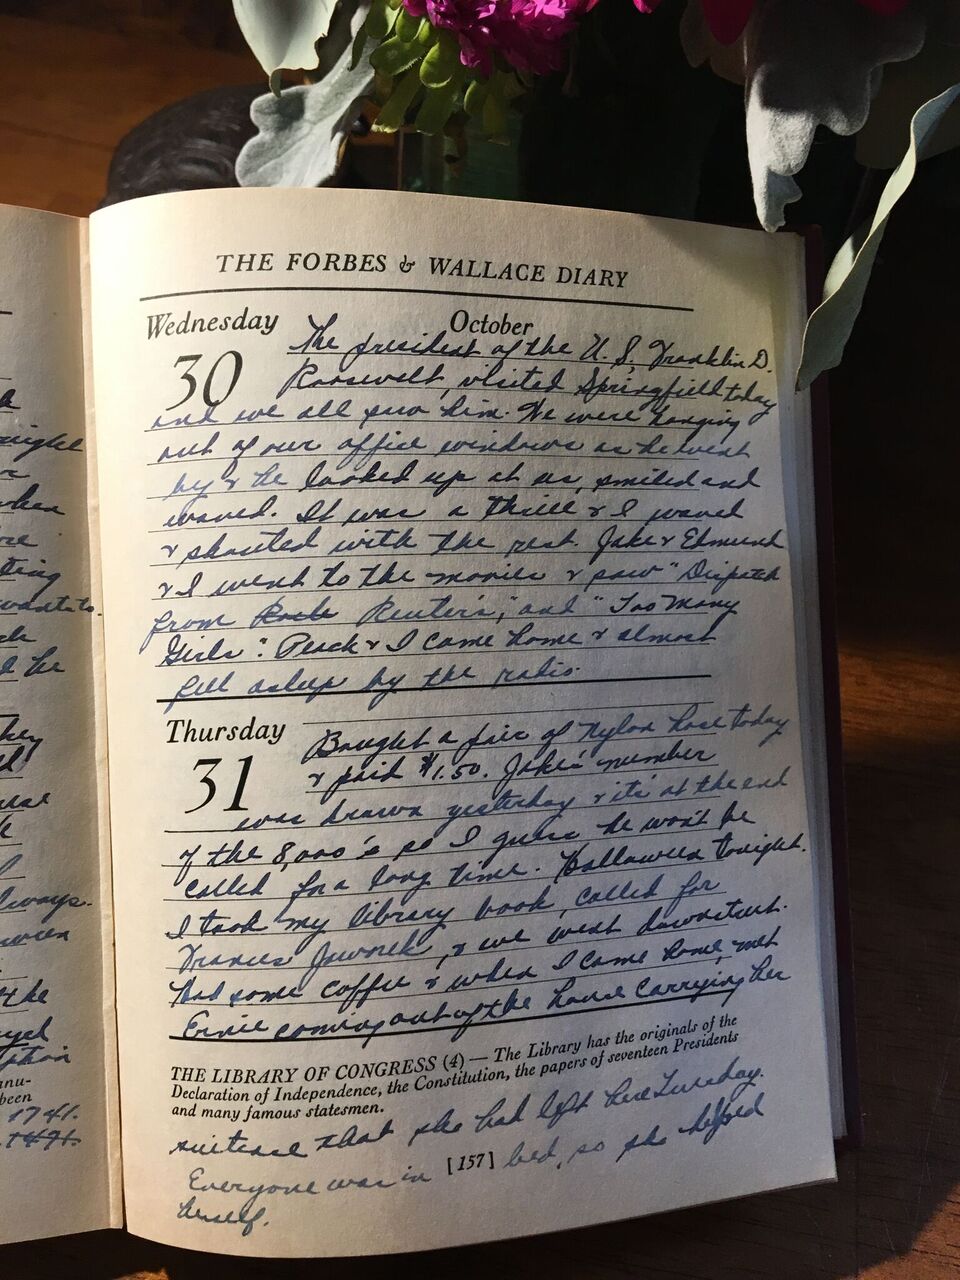 THE FORBES & WALLACE DIARY
Wednesday October
30
The president of the U. S. Franklin D.
Roosevelt, visited Springfield today
and we all saw him. We were hanging
out of our office windows as he went
by & he looked up at us, smiled and
waved. It was a thrill & I waved
& shouted with the rest. Jake & Edmund
& I went to the movies & saw "Dispatch
from Reuter's," and "Too Many
Girls". Peach & I came home & almost
fell asleep by the radio.
Thursday
31
Bought a pair of Nylon hose today
& paid $1.50. Jake's number
was drawn yesterday & it's at the end
of the 8,000's so I guess he won't be
called for a long time. Halloween tonight.
I took my library book, called for
Frances & we went downstreet.
Had some coffee & when I came home, met
Ernie coming out of the house carrying her
THE LIBRARY OF CONGRESS (4) — The Library has the originals of the
Declaration of Independence, the Constitution, the papers of seventeen Presidents
and many famous statesmen.
suitcase that she had left here Tuesday.
Everyone was in bed, so she helped
[157]
herself.
night
when
ting
want to
he
always.
the
1741.